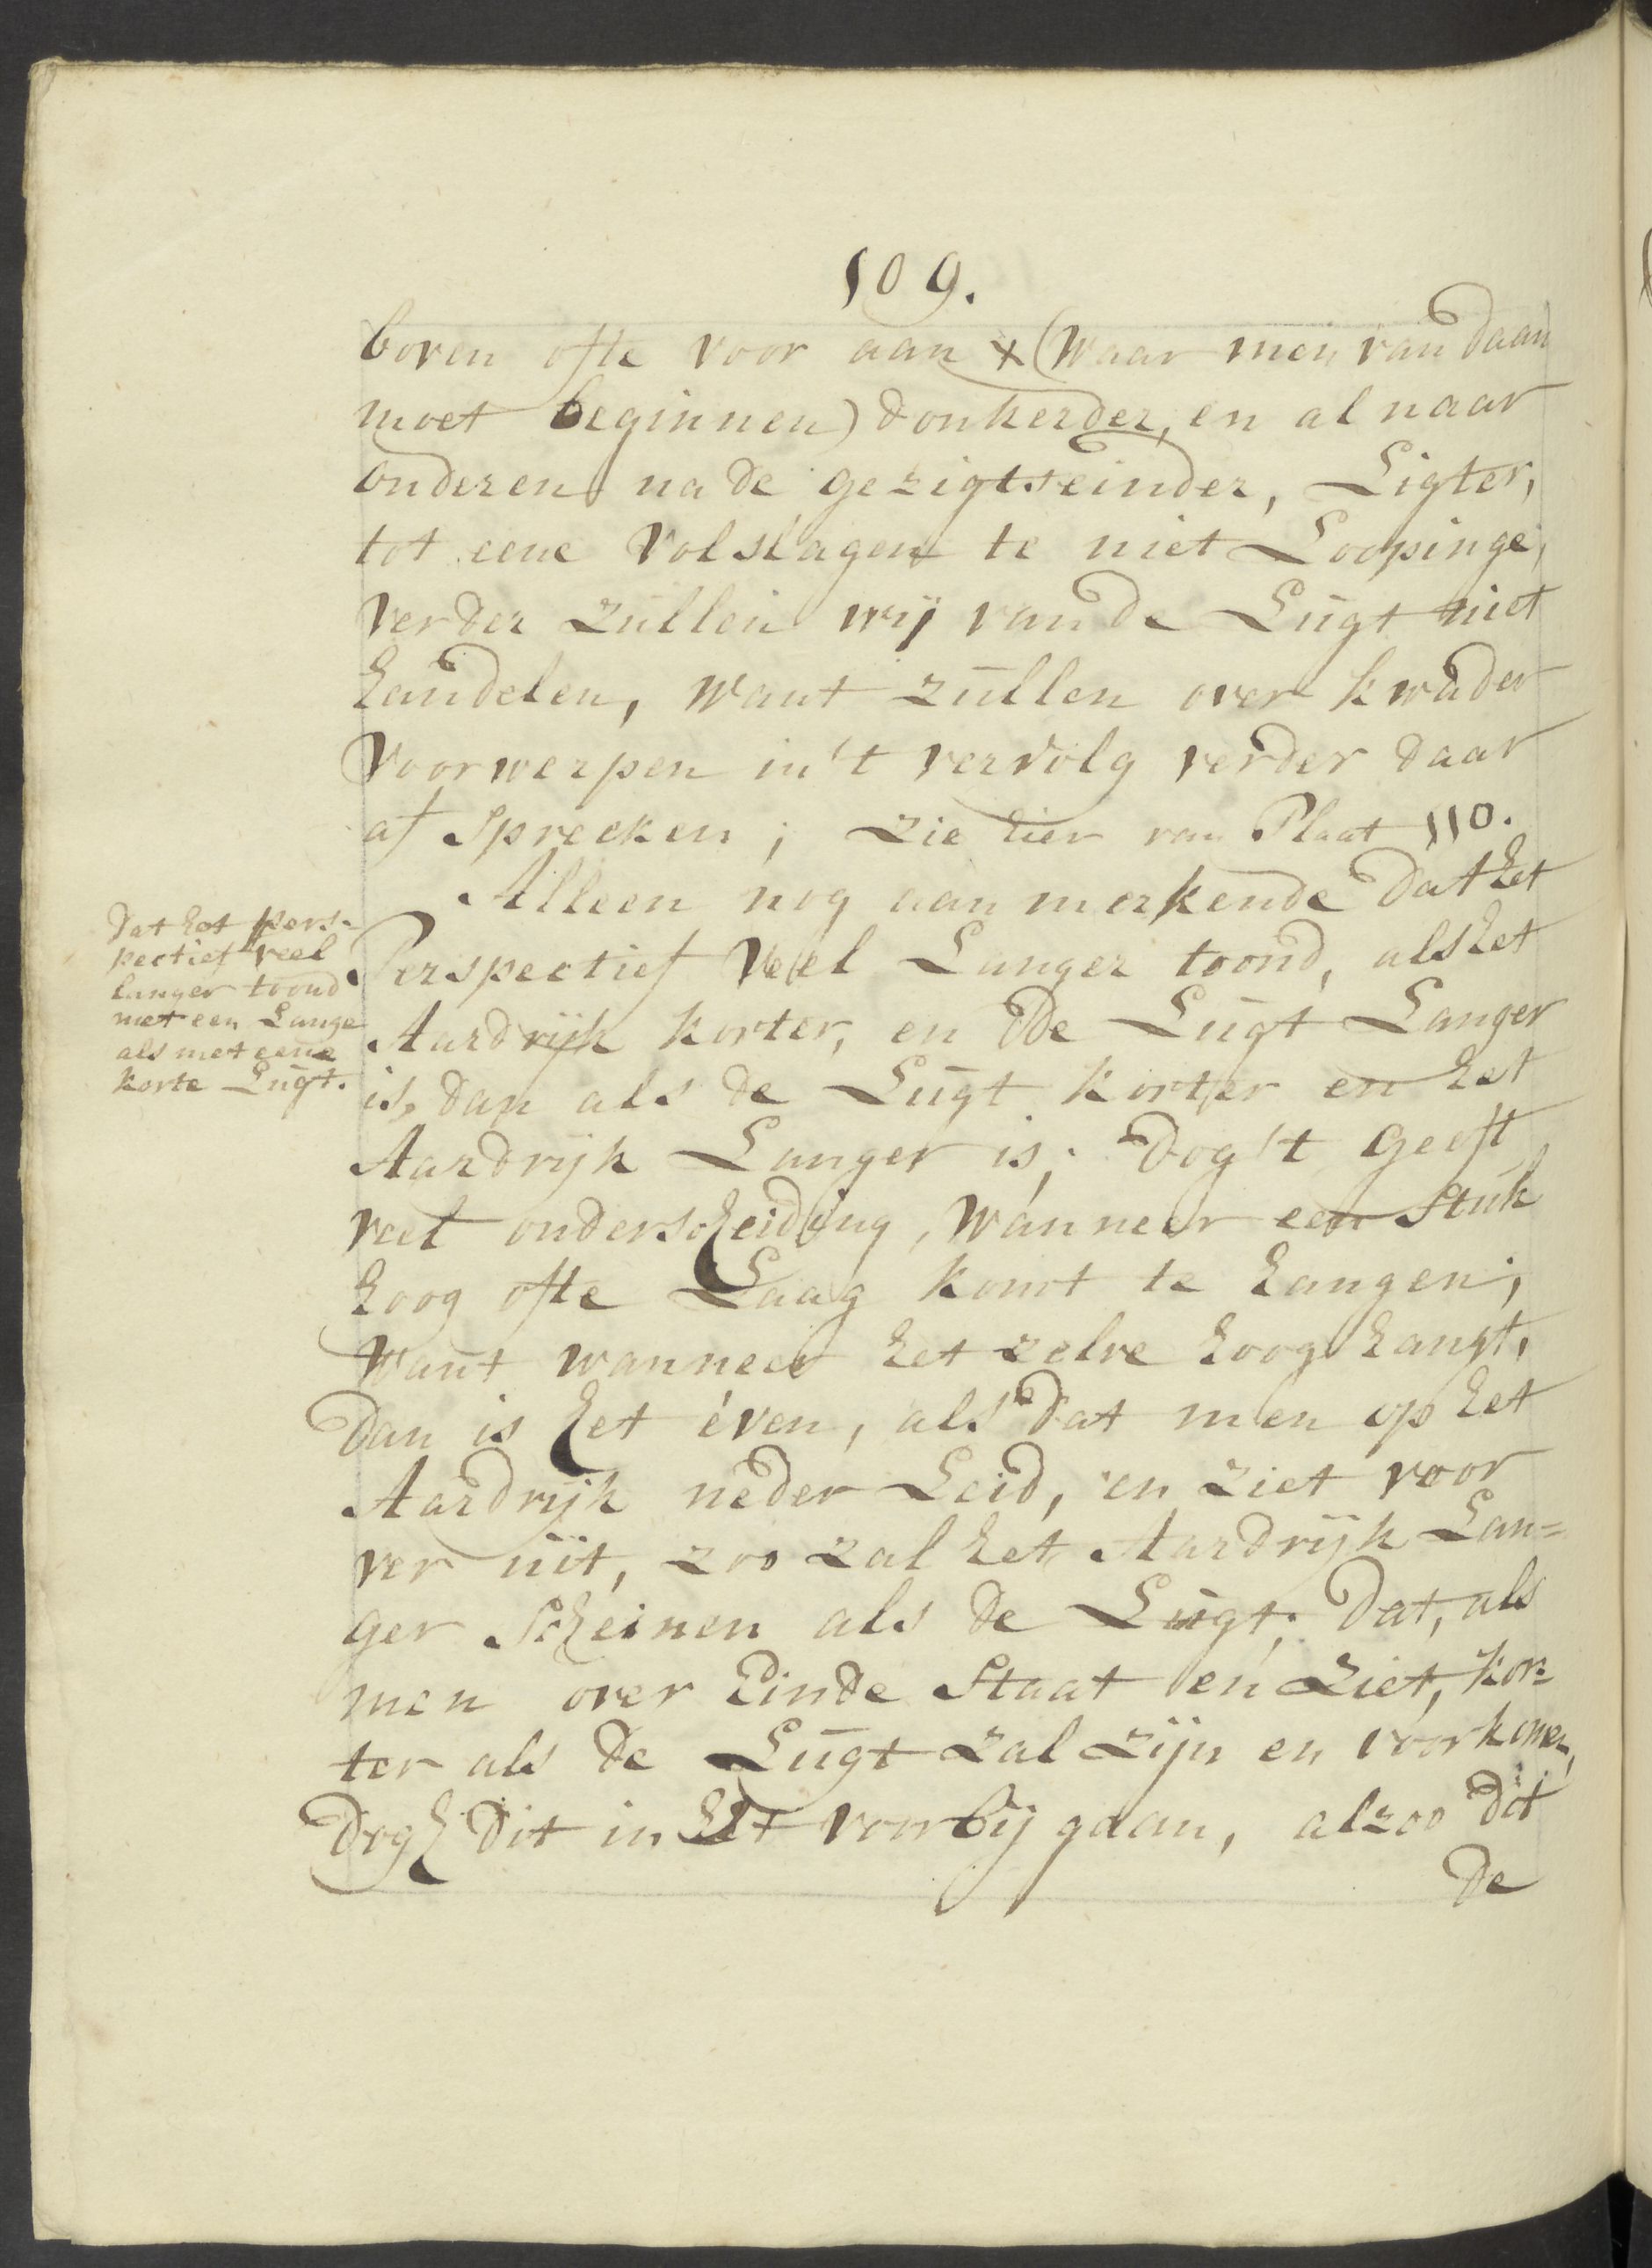 109.
boven ofte voor aan x (waar men van daan
moet beginnen) donkerder, en al naar
onderen na de gezigtseinder, Ligter,
tot eene volslagen te niet Loopinge;
verder zullen wij van de Lugt niet
handelen, want zullen over kwader
voorwerpen in 't vervolg verder daar
af Sprecken; zie hier van Plaat 110.
Alleen nog aan merkende dat het
Perspectief veel Langer toond, als het
Aardrijk korter, en de Lugt Langer
is, dan als de Lugt korter en het
Aardrijk Langer is; Dog 't geeft
veel onderscheiding, wanneer een Stuk
hoog ofte Laag komt te hangen;
want wanneer het zelve hoog hangt,
Dan is het éven, als dat men op het
Aardrijk neder Leid, en ziet voor
ver uit, zoo zal het Aardrijk Lan=
ger Scheinen als de Lugt; dat, als
men over Einde Staat en ziet, kor=
ter als de Lugt zal zijn en voorkomen,
Dogh dit in het voorbij gaan, alzoo dit
de
Dat het pers-
pectief veel
langer toond
met een Lange
als met eene
korte Lugt.